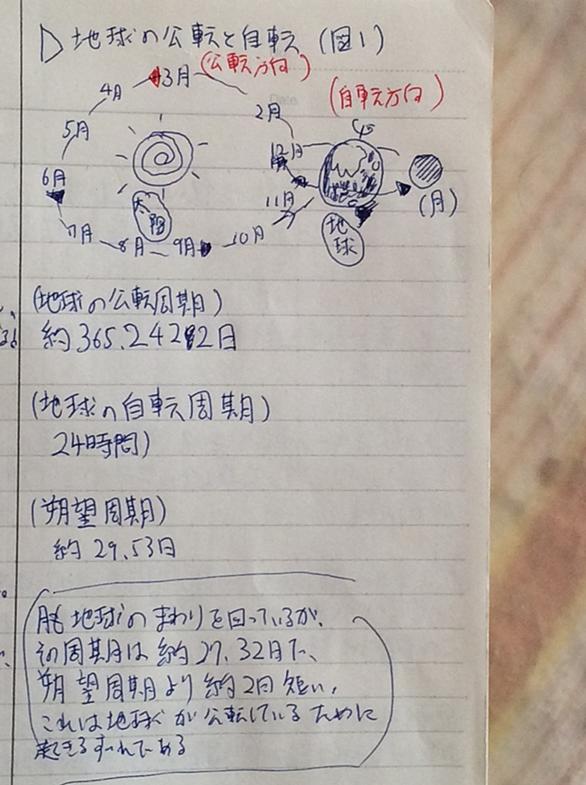 ▷地球の公転と自転 (図1)
(公転方向)
3月
4月
2月
(自転方向)
5月
12月
6月
11月
(月)
太陽
7月
8月
9月
10月
地球
(地球の公転周期)
約365.2422日
(地球の自転周期)
24時間)
(朔望周期)
約29.53日
月も地球のまわりを回っているが、
その周期は約27.32日で、
朔望周期より約2日短い。
これは地球が公転しているために
起きるずれである